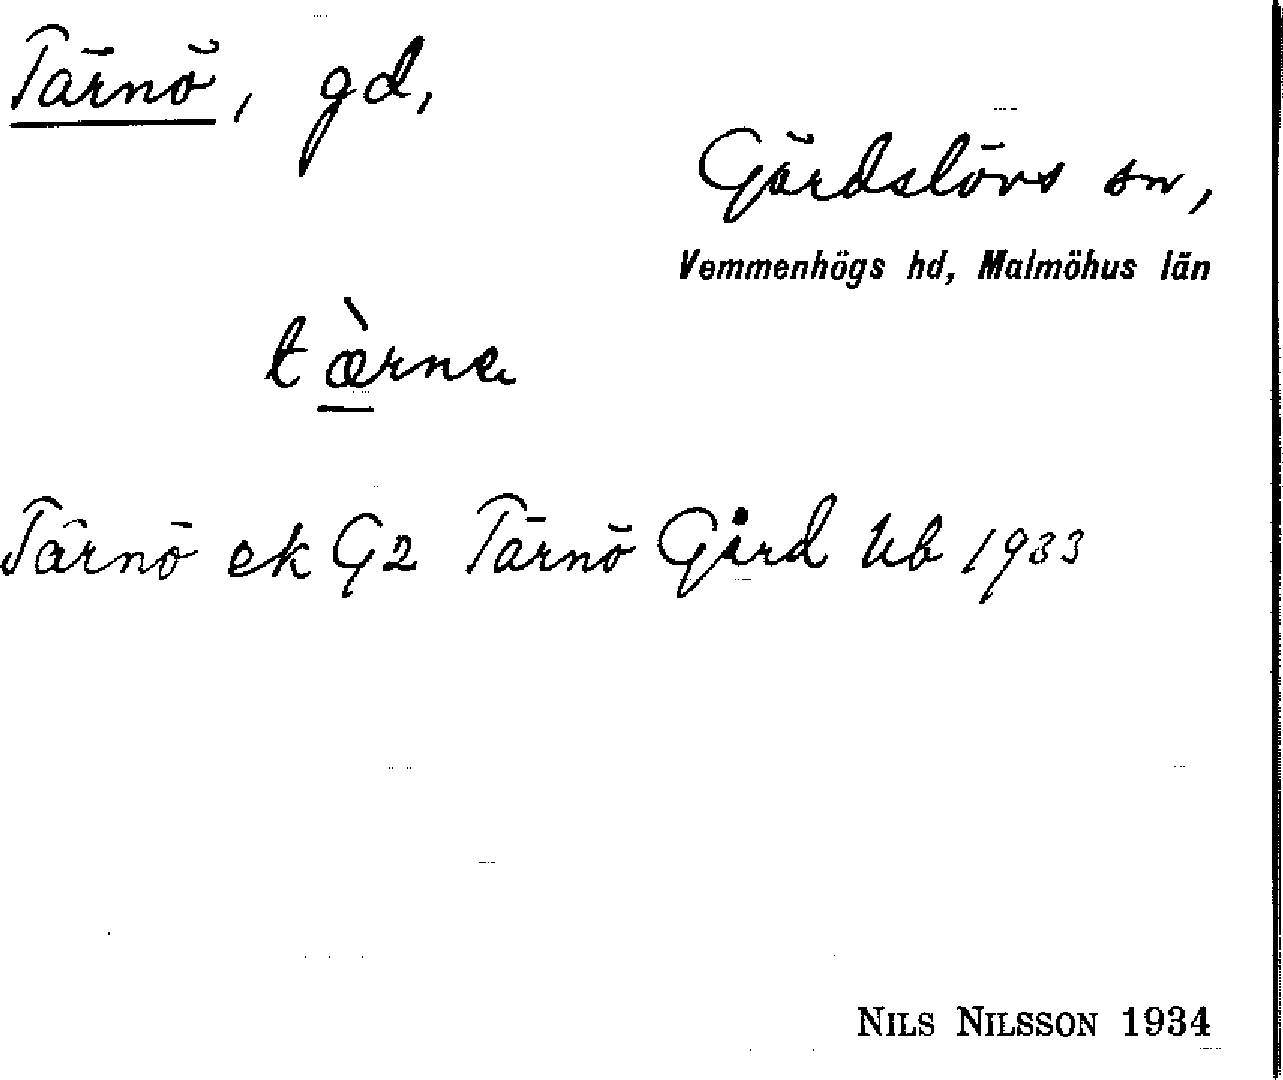 Tärnö, gd,
Gärdslövs sn,
Vemmenhögs hd, Malmöhus län
tæ̀rne
Tärnö ek G2 Tärnö Gård Ub 1933
NILS NILSSON 1934